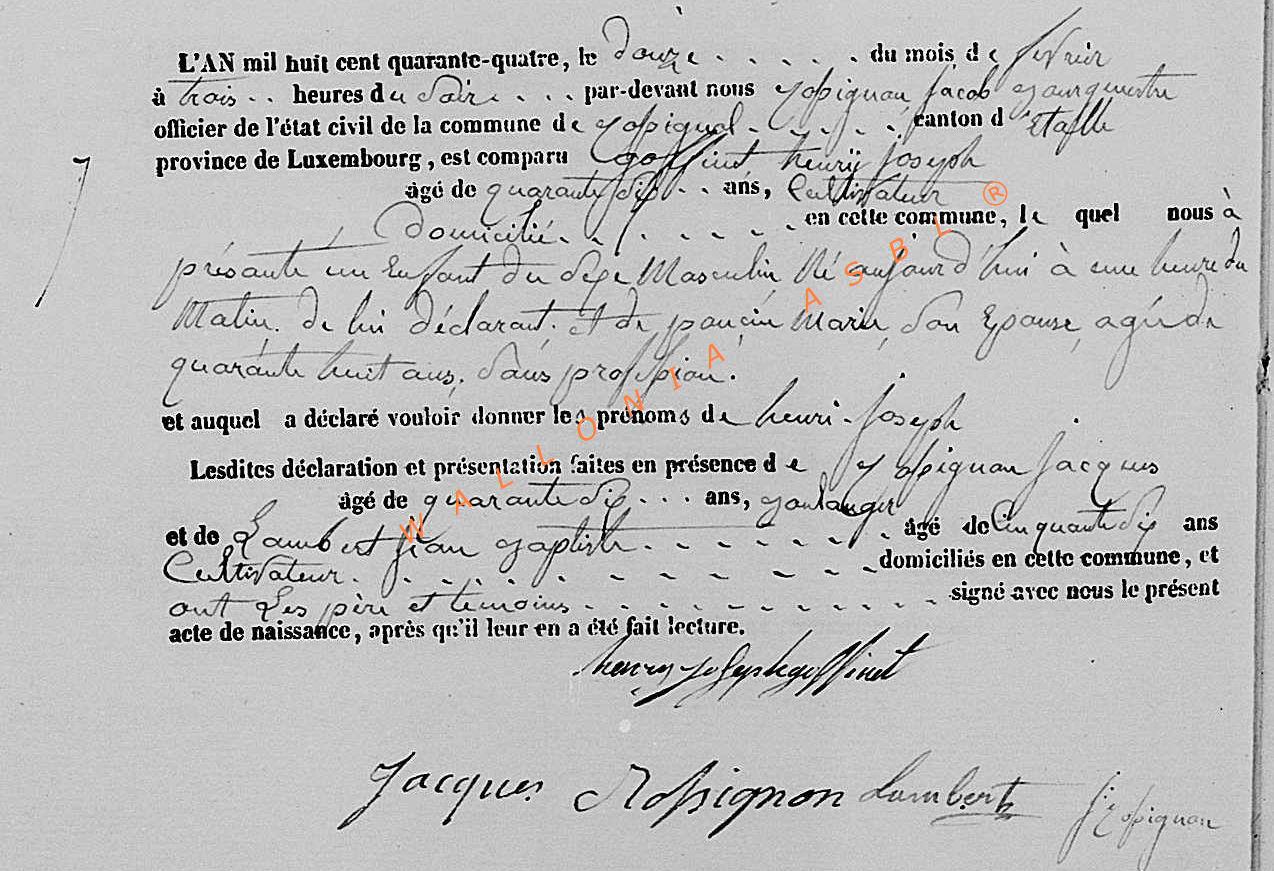 L'AN mil huit cent quarante-quatre, le douze . . . . . du mois de fevrier
à trois . . heures du Soir . . . par-devant nous Rossignon Jacob Bourguestre
officier de l'état civil de la commune de Rossignol . . . . . canton d'Etalle
province de Luxembourg, est comparu Goffinet henrÿ Joseph
7
âgé de quarante six . . ans, Cultivateur
Domicilié . . . . . . . en cette commune, le quel nous à
présanté un Enfant du Sexe Masculin Né aujourd'hui à une heure du
Matin. de lui déclarant. et de poncin Marie, Son Epouse, agée de
quarante huit ans, Sans profession.
et auquel a déclaré vouloir donner les prénoms de henri-Joseph
Lesdites déclaration et présentation faites en présence de Rossignon Jacques
âgé de quarante six . . . ans, Boulanger
et de Lambert Jean Baptiste . . . . . . . . âgé de Cinquante six ans
Cultivateur. . . . . . . . . . . domiciliés en cette commune, et
ont Les père et temoins . . . . . . . . . . . signé avec nous le présent
acte de naissance, après qu'il leur en a été fait lecture.
henry joseph goffinet
Jacques Rossignon Lambert J. Rossignon
WALLONIA ASBL ®